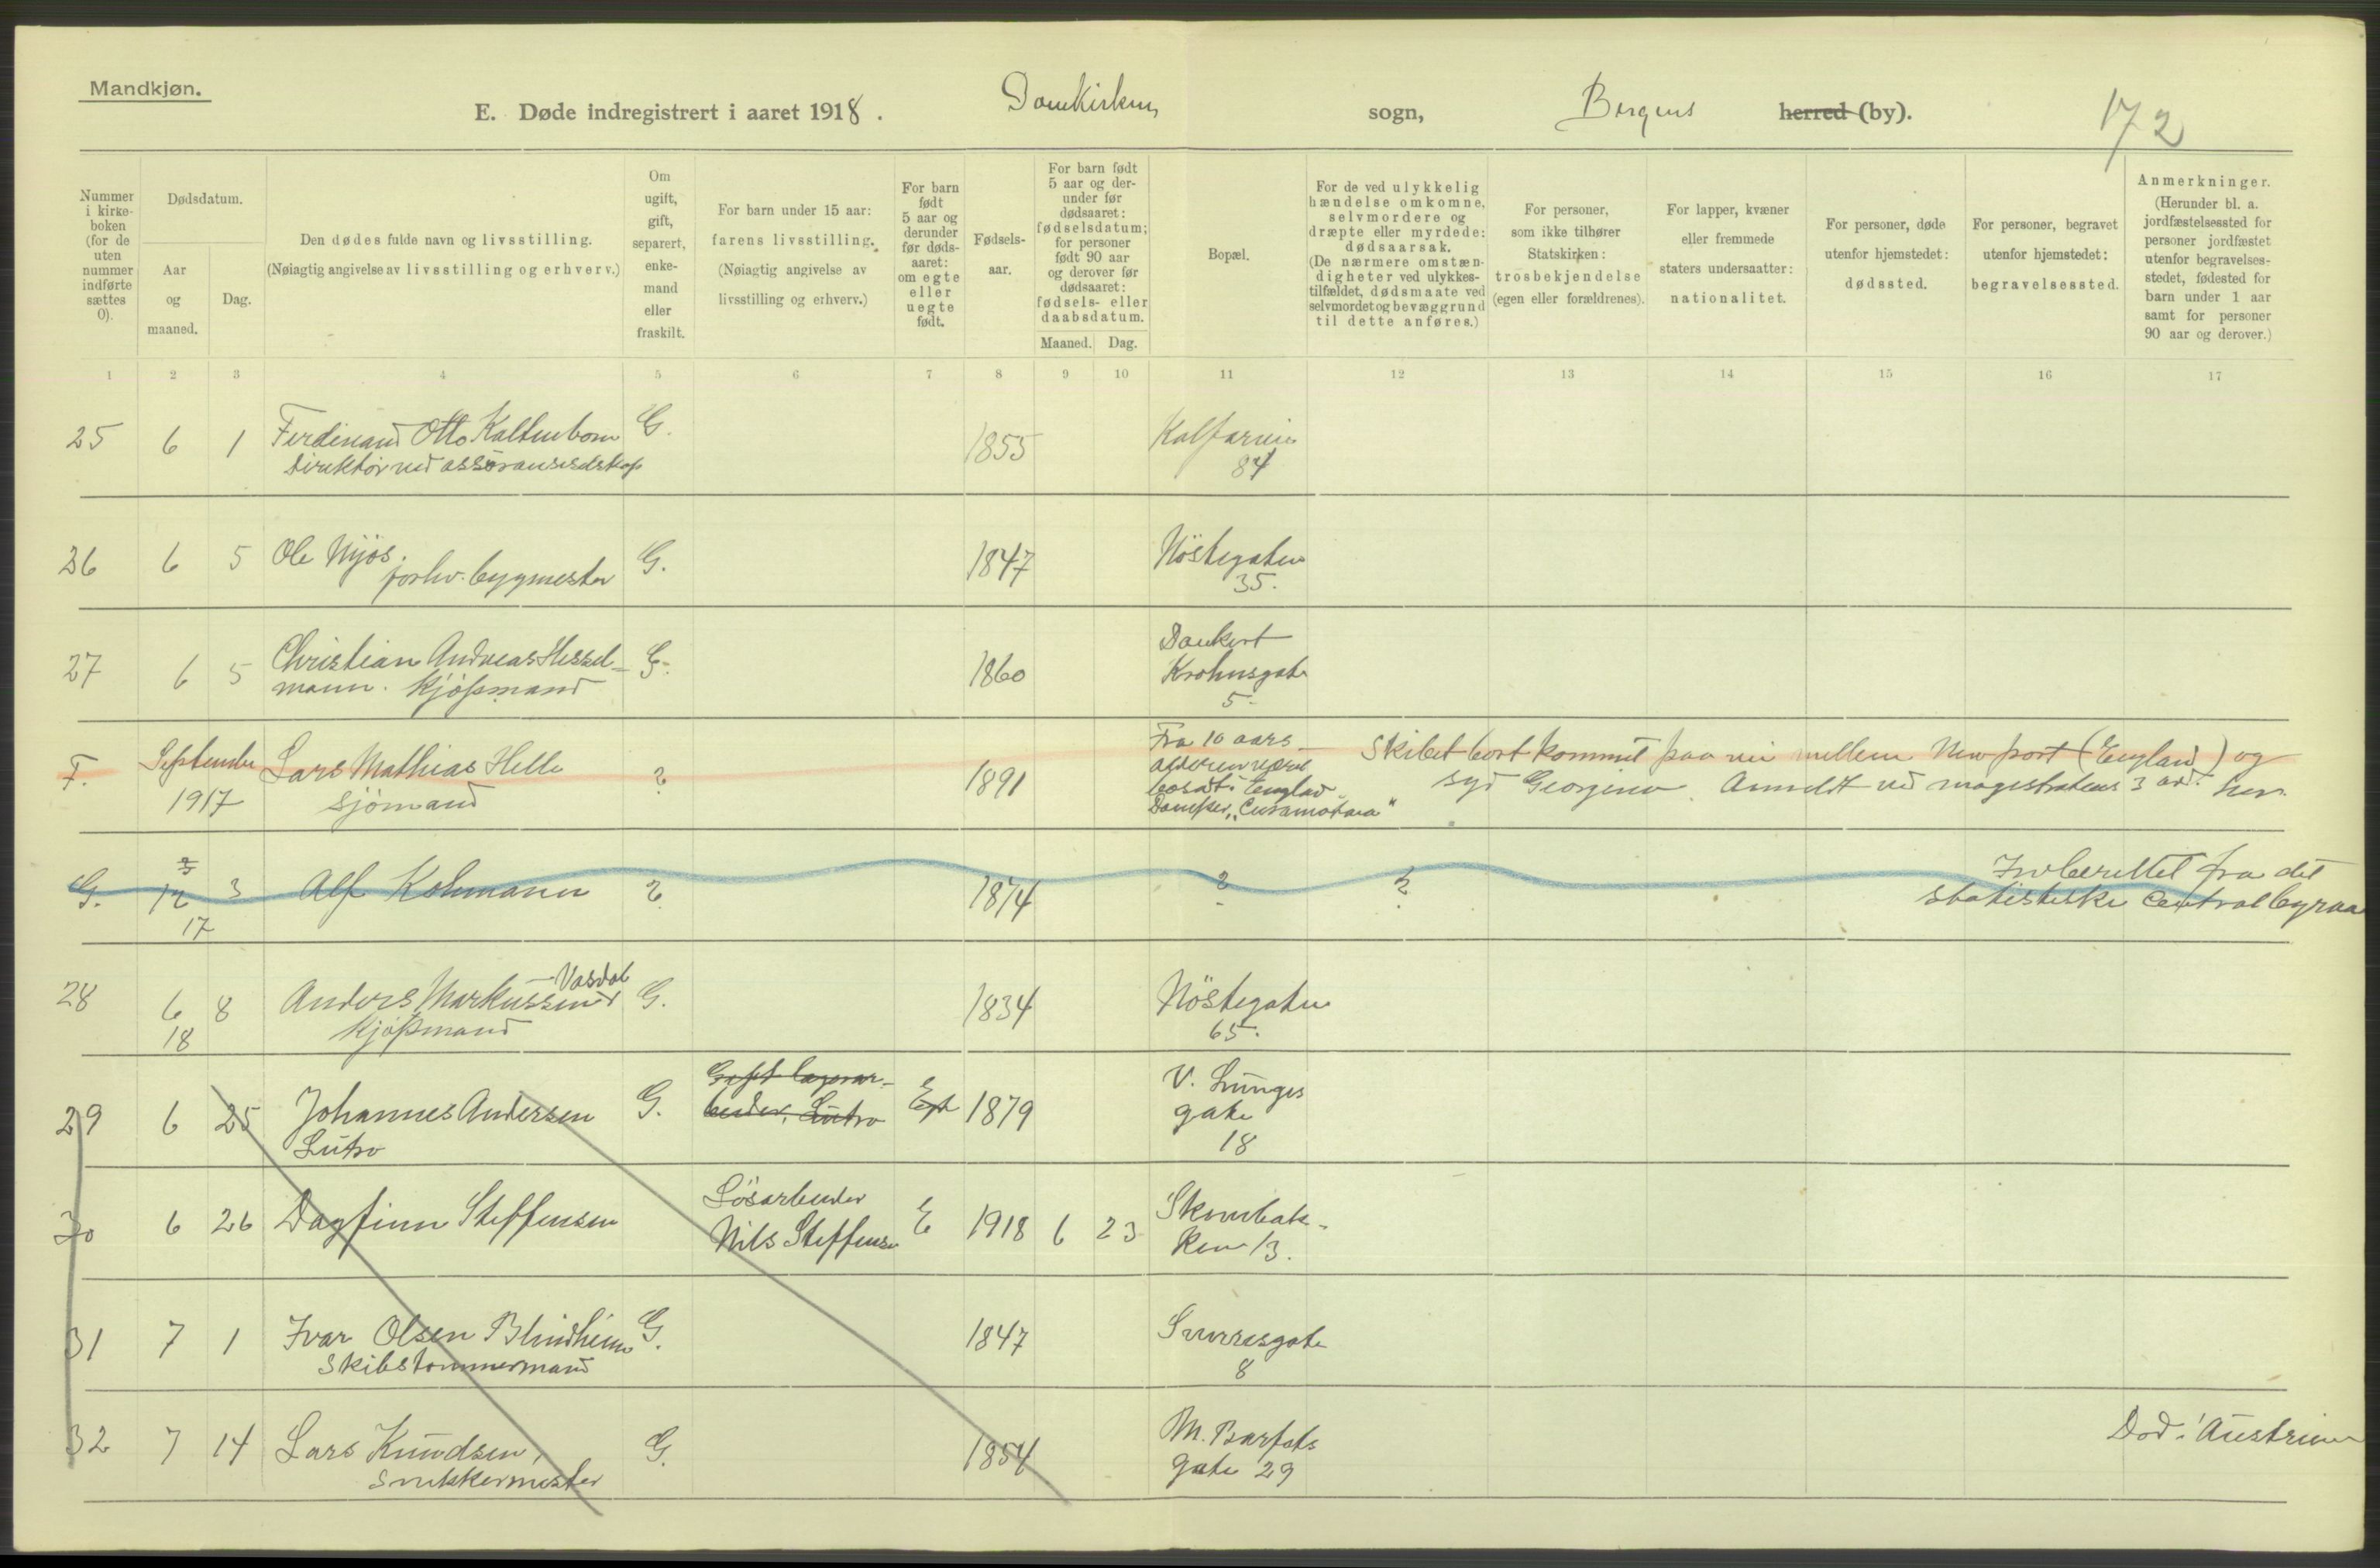 Mandkjøn.
E. Døde indregistrert i aaret 1918. Domkirkens sogn, Bergens herred (by). 172
Nummer i kirkeboken (for de uten nummer indførte sættes 0).
Dødsdatum.
Aar og maaned.
Dag.
Den dødes fulde navn og livsstilling.
(Nøiagtig angivelse av livsstilling og erhverv.)
Om ugift, gift, separert, enkemand eller fraskilt.
For barn under 15 aar: farens livsstilling.
(Nøiagtig angivelse av livsstilling og erhverv.)
For barn født 5 aar og derunder før dødsaaret: om egte eller uegte født.
Fødselsaar.
For barn født 5 aar og derunder før dødsaaret: fødselsdatum; for personer født 90 aar og derover før dødsaaret: fødsels- eller daabsdatum.
Maaned. Dag.
Bopæl.
For de ved ulykkelig hændelse omkomne, selvmordere og dræpte eller myrdede: dødsaarsak.
(De nærmere omstændigheter ved ulykkestilfældet, dødsmaate ved selvmordet og bevæggrund til dette anføres.)
For personer, som ikke tilhører Statskirken: trosbekjendelse (egen eller forældrenes).
For lapper, kvæner eller fremmede staters undersaatter: nationalitet.
For personer, døde utenfor hjemstedet: dødssted.
For personer, begravet utenfor hjemstedet: begravelsessted.
Anmerkninger.
(Herunder bl. a. jordfæstelsessted for personer jordfæstet utenfor begravelsesstedet, fødested for barn under 1 aar samt for personer 90 aar og derover.)
1 2 3 4 5 6 7 8 9 10 11 12 13 14 15 16 17
25 6 1 Ferdinand Otto Kaltenborn G. 1855 Kalfarvein
Direktör ved assöranseselskap 84
26 6 5 Ole Nyös. G. 1847 Nöstegaten
forhv. bygmester 35.
27 6 5 Christian Andreas Hessel- G. 1860 Dankert
mann. Kjöpmand Krohnsgate
5.
F. September Lars Mathias Helle ? 1891 Fra 10 aars
1917 sjömand alderen været
bosat i England
Damper "
Skibet bortkommet paa vei mellem Newport (England) og
syd Georgien. Anmeldt ved magistratens 3 avd. her.
G. 12 3 Alf Kohmann ? 1874 ? ? Indberettet fra det
17 statistiske Centralbyraa
28 6 8 Anders Markussen Vasdal G. 1834 Nöstegaten
18 Kjöpmand 65.
29 6 25 Johannes Andersen G. Egte 1879 V. Lunges
Lutro gate
18
30 6 26 Dagfinn Steffensen Lösarbeider E 1918 6 23 Skivebak-
Nils Steffensen ken 13.
31 7 1 Ivar Olsen Blindheim G. 1847 Sverresgate
Skibstömmermand 8
32 7 14 Lars Knudsen, G. 1854 M. Barfots Död i Austrheim
Snekkermester gate 29